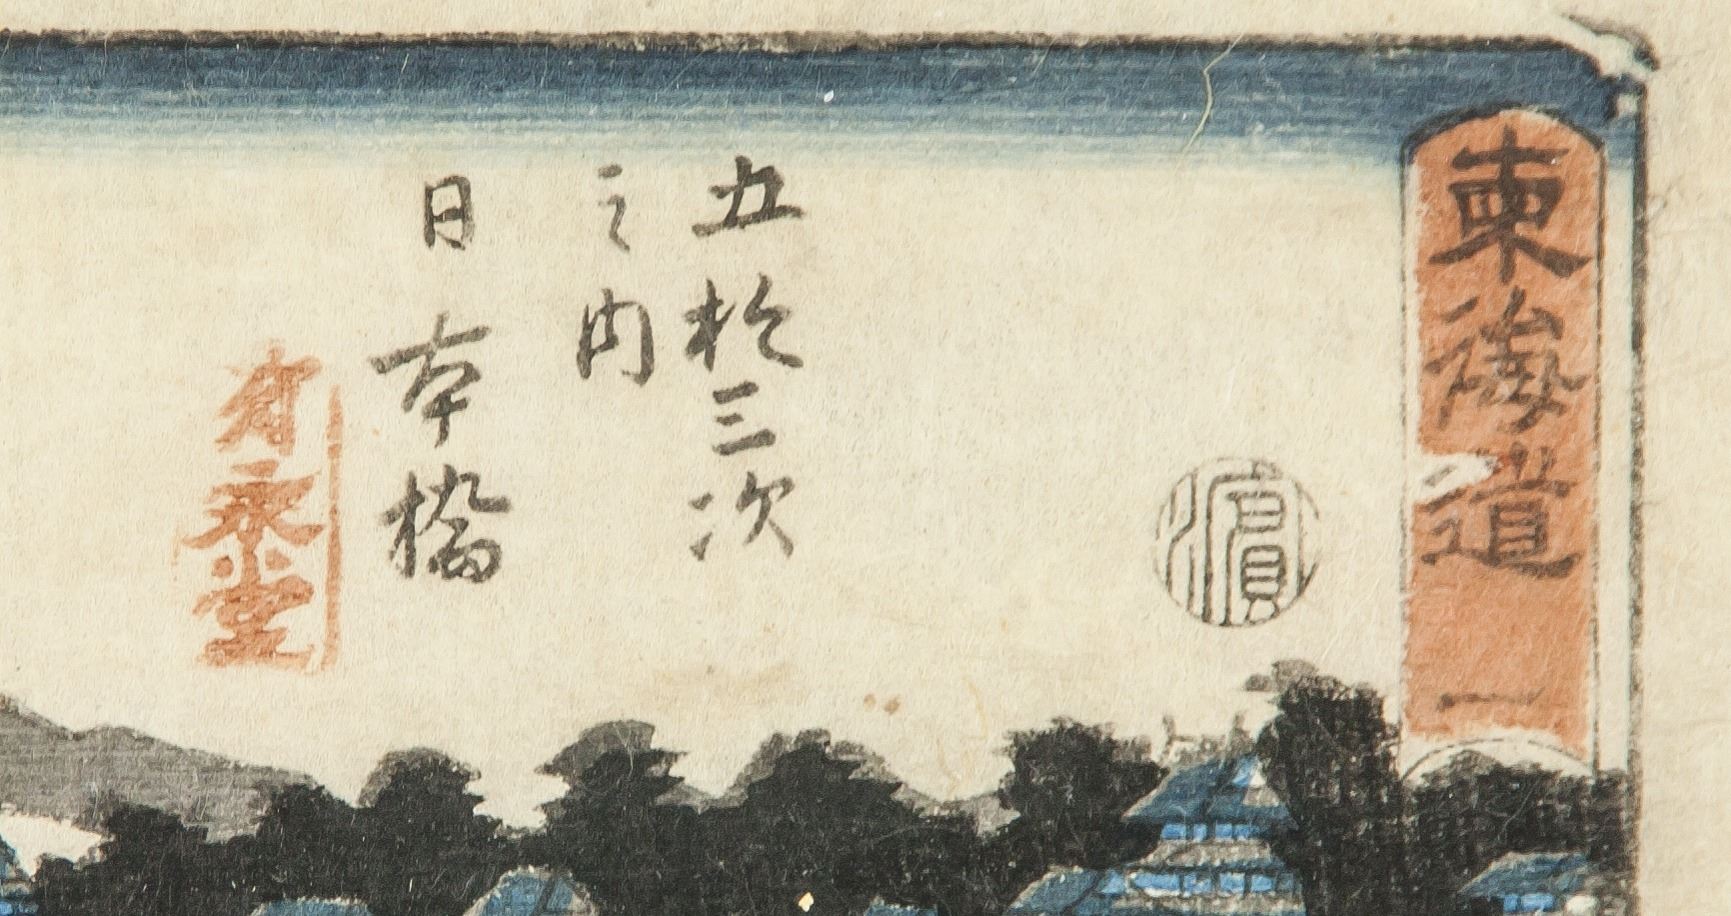 東海道 一
濵
五拾三次
之内
日本橋
有永堂